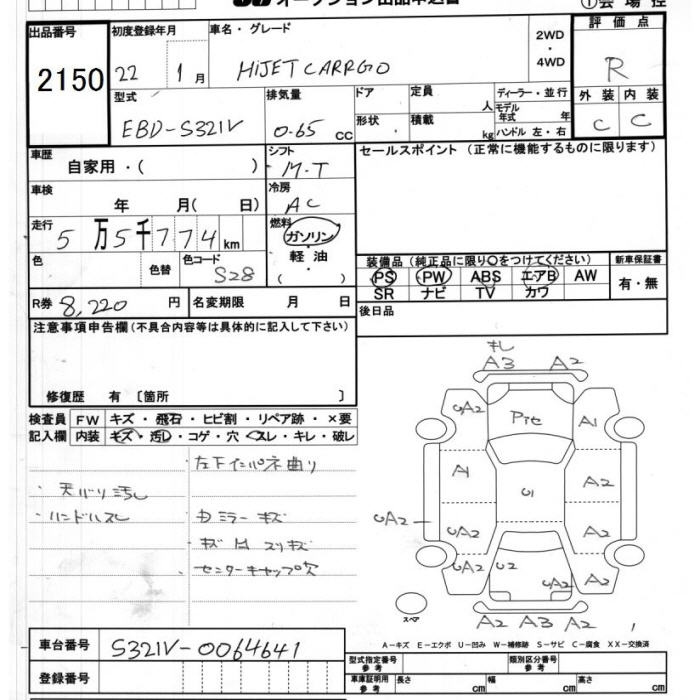 オークション出品申込書
①会場控
出品番号 初度登録年月 車名・グレード 2WD ・ 4WD 評価点
2150 22 1月 HIJET CARRGO R
型式 排気量 ドア 定員 人 ディーラー・並行 外装 内装
EBD-S321V 0.65 CC 形状 積載 kg モデル年式 年 ハンドル 左・右 C C
車歴 自家用・( ) シフト M・T セールスポイント (正常に機能するものに限ります)
車検 年 月( 日) 冷房 AC
走行 5万5千774km 燃料 ガソリン・軽油・( )
色 色替 色コード S28 装備品 (純正品に限り○をつけてください) 新車保証書
PS PW ABS エアB AW 有・無
SR ナビ TV カワ
R券 8,220円 名変期限 月 日 後日品
注意事項申告欄 (不具合内容等は具体的に記入して下さい)
修復歴 有 [箇所 ]
検査員 FW キズ・飛石・ヒビ割・リペア跡・×要
記入欄 内装 キズ・汚し・コゲ・穴・スレ・キレ・破レ
左下インパネ曲り
・天バリ汚し
・ハンドルスレ カミラーキズ
センターキャップ欠
札
A3 A2
UA2 Pite A1
A1 U1 A2
UA2 UA2 A2
UA2 U2 UA2 A2
スペア A2 A3 A2
A-キズ E-エクボ U-凹み W-補修跡 S-サビ C-腐食 XX-交換済
車台番号 S321V-0064641
登録番号 型式指定番号 参考 類別区分番号 参考
車庫証明用 参考 長さ cm 幅 cm 高さ cm